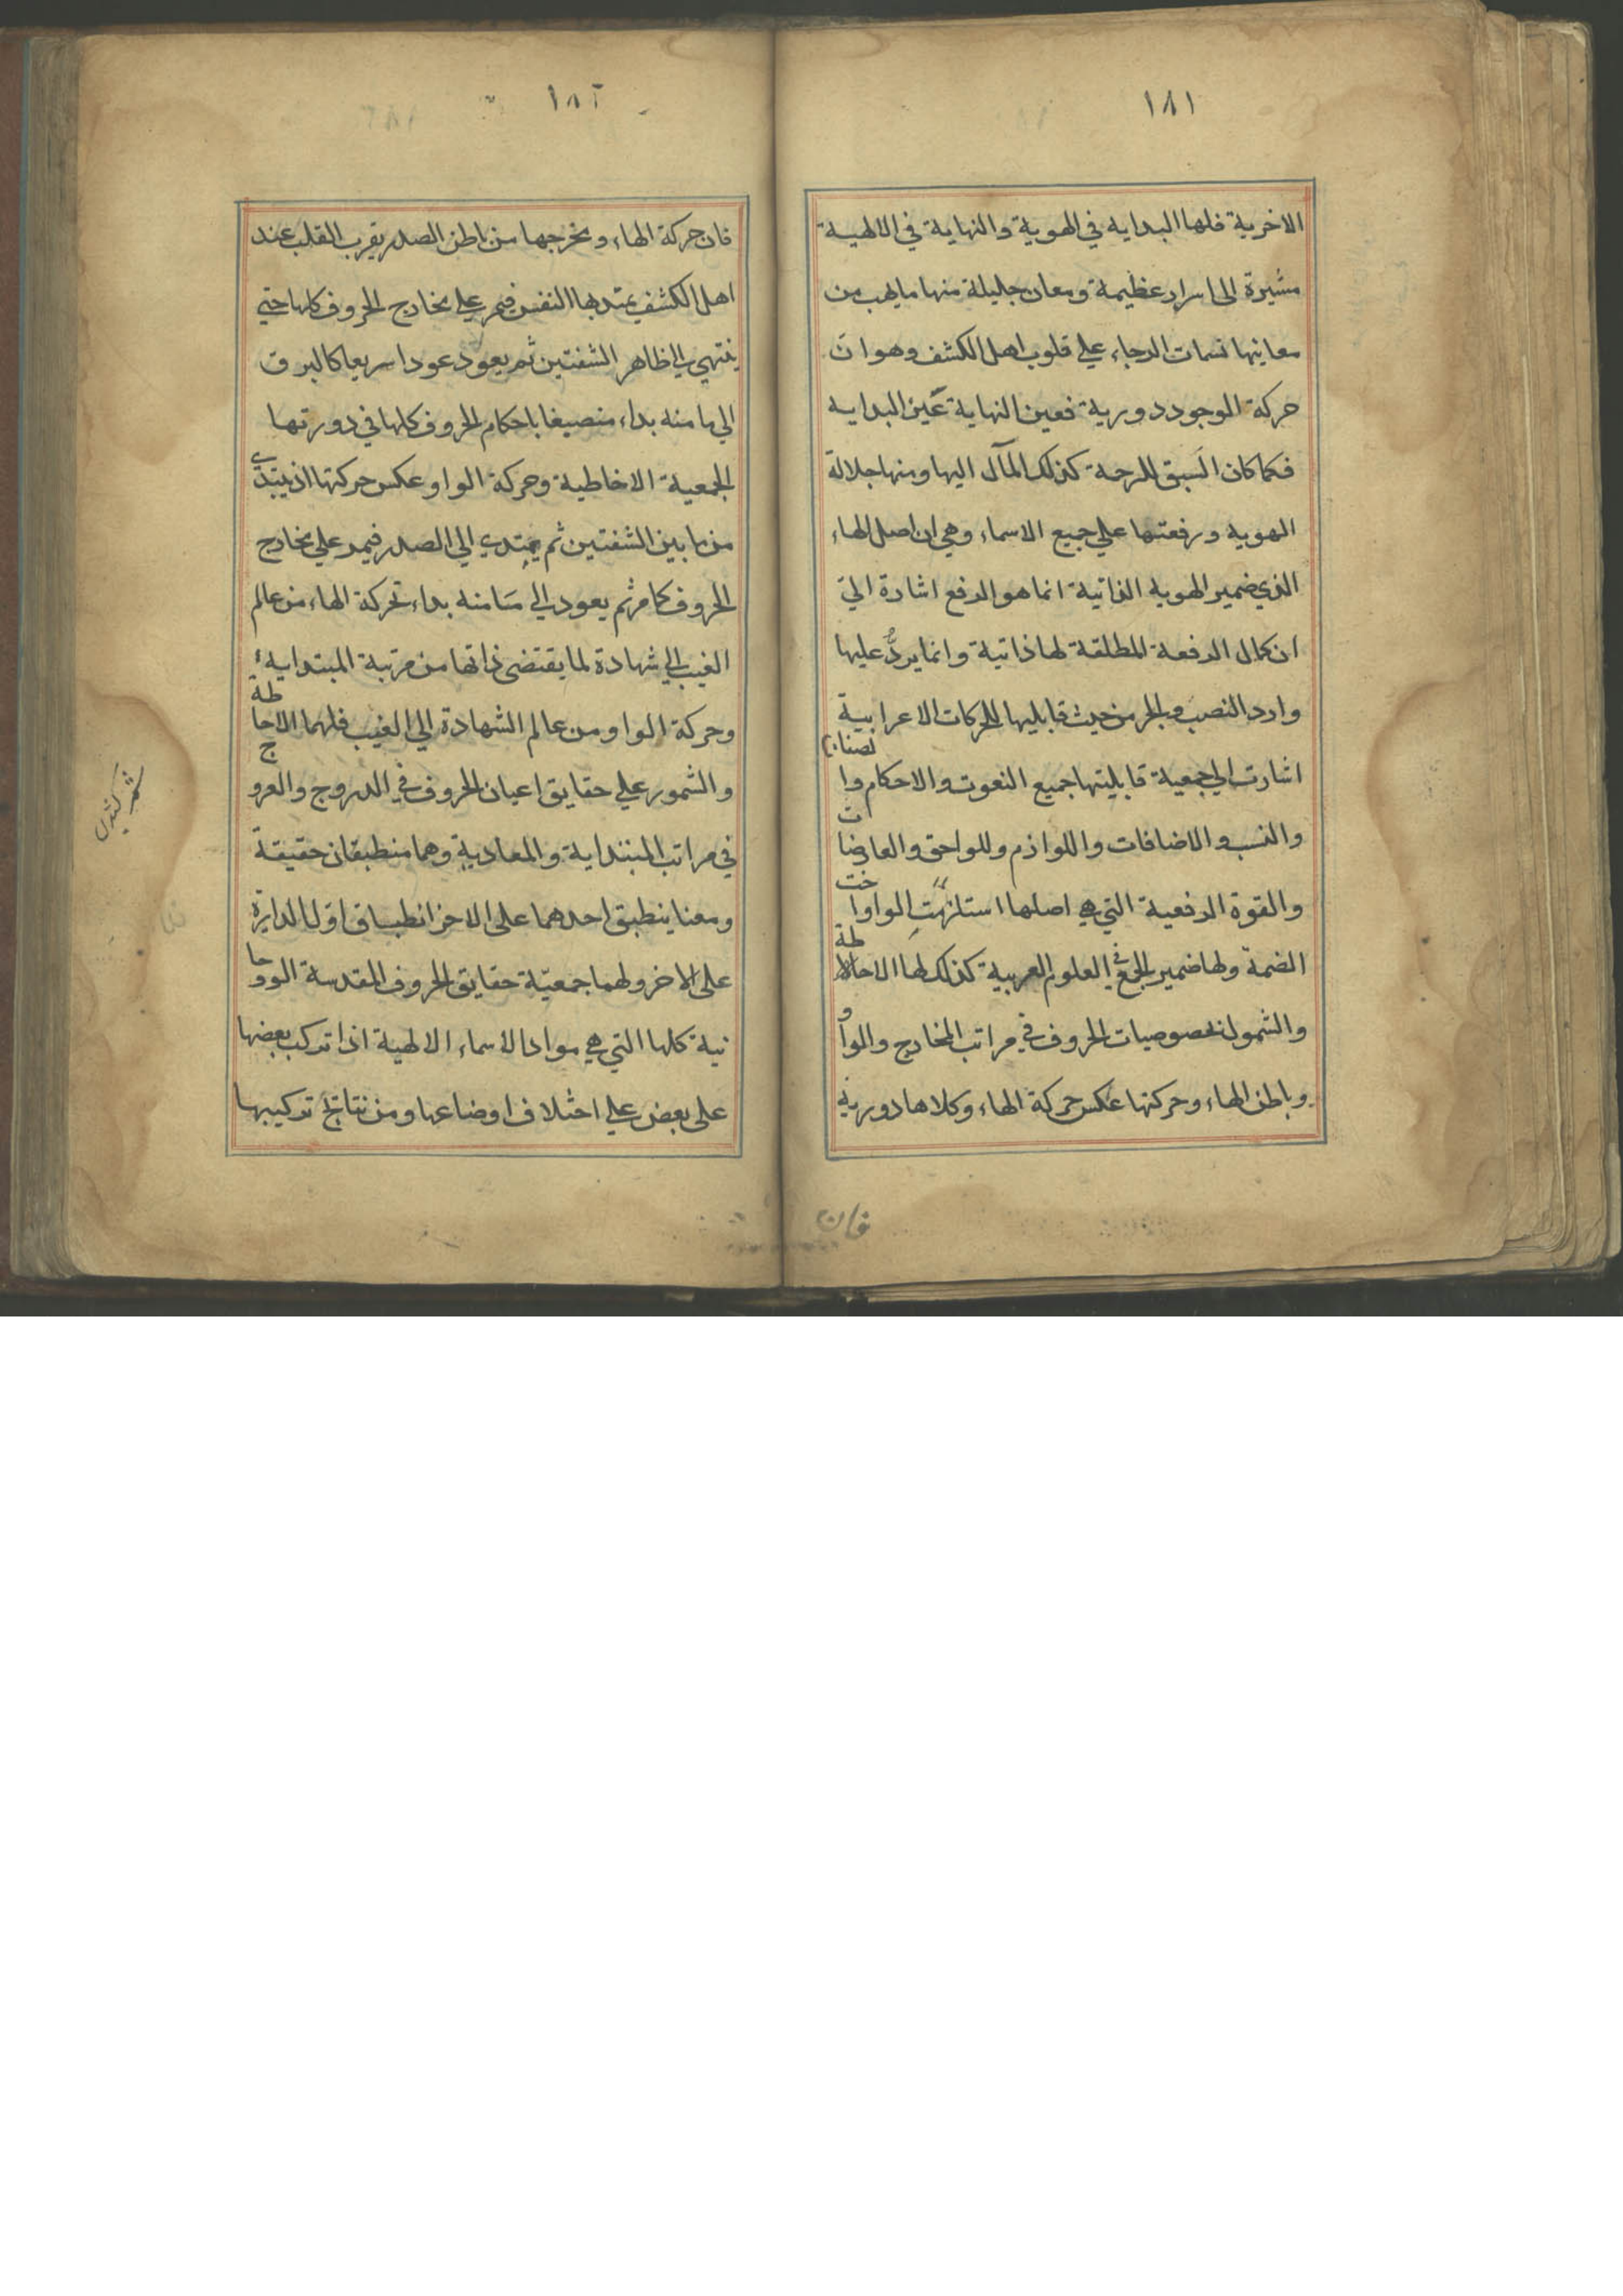 ١٨١
الاخرية فلها البدايه في الهوية والنهاية في الالهية
مشيرة الى اسرار عظيمة ومعان جليلة منها ما يهب من
معانيها نسمات الرجاء علي قلوب اهل الكشف وهو ان
حركة الوجود دورية فعين النهاية عين البدايه
فكما كان السبق للرحمة كذلك المآل اليها ومنها جلالة
الهويه ورفعتها علي جميع الاسماء وهي ان اصل الهاء
الذي ضمير الهويه الذاتية انما هو الرفع اشارة الي
ان كمال الرفعة المطلقة لها ذاتية وانما يردُّ عليها
وارد النصب والجر من حيث قابليها للحركات الاعرابية
اشارت الي جمعية قابليتها جميع النعوت والاحكام وا
والنسب والاضافات واللوازم وللواحق والعارضات
والقوة الرفعية التي هي اصلها استلزمت الواو اخت
الضمة ولها ضمير الجمع في العلوم العربية كذلك لها الاحاطة
والشمول بخصوصيات الحروف في مراتب المخارج والواو
وباطن الهاء وحركتها عكس حركة الهاء وكلاها دورية
فان
١٨٢
فان حركة الهاء ومخرجها من باطن الصدر بقرب القلب عند
اهل الكشف يمتد بها النفس فيمر علي مخارج الحروف كلها حتي
ينتهي الي ظاهر الشفتين ثم يعود عودا سريعا كالبرق
الي ما منه بداء منصبغا باحكام الحروف كلها في دورتها
الجمعية الاخاطية وحركة الواو عكس حركتها اذ يبتدي
من ما بين الشفتين ثم يمتدي الي الصدر فيمر علي مخارج
الحروف كما مر ثم يعود الي ما منه بداء تحركة الهاء من عالم
الغيب الي شهادة لما يقتضى ذاتها من مرتبة المبتدايه
وحركة الواو من عالم الشهادة الي الغيب فلهما الاحاطة
والشمور علي حقايق اعيان الحروف في الدروج والعروج
في مراتب المبتداية والمعادية وهما منطبقان حقيقة
ومعنا ينطبق احدهما على الاخر انطباق اول الدايرة
على الاخر ولهما جمعيّة حقايق الحروف المقدسة الروحا
نية كلها التي هي مواد الاسماء الالهية اذا تركب بعضها
على بعض علي اختلاف اوضاعها ومن نتائج تركيبها